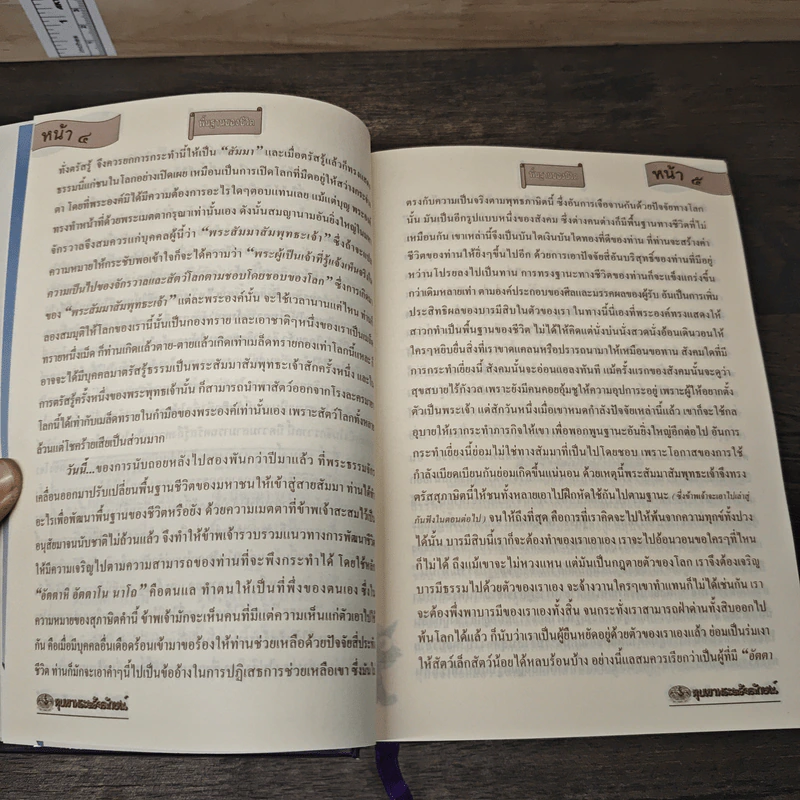 หน้า ๔
พื้นฐานของชีวิต
ทั่งตรัสรู้ จึงควรยกการกระทำนี้ให้เป็น “สัมมา” และเมื่อตรัสรู้แล้วก็ทรงแสดง
ธรรมนี้แก่ชนในโลกอย่างเปิดเผย เหมือนเป็นการเปิดโลกที่มืดอยู่ให้สว่างกระจ่าง
ตา โดยที่พระองค์มิได้มีความต้องการอะไรใดๆตอบแทนเลย แม้แต่บุญ พระองค์
ทรงทำหน้าที่ด้วยพระเมตตากรุณาเท่านั้นเอง ดังนั้นสมญานามอันยิ่งใหญ่ใน
จักรวาลจึงสมควรแก่บุคคลผู้นี้ว่า “พระสัมมาสัมพุทธะเจ้า” ซึ่งถ้าจะแปล
ความหมายให้กระชับพอเข้าใจก็จะได้ความว่า “พระผู้เป็นเจ้าที่รู้แจ้งเห็นจริงใน
ความเป็นไปของจักรวาลและสัตว์โลกตามชอบโดยชอบของโลก” ซึ่งการเกิด
ของ “พระสัมมาสัมพุทธะเจ้า” แต่ละพระองค์นั้น จะใช้เวลานานแค่ไหน ท่าน
ลองสมมุติให้โลกของเรานี้นั้นเป็นกองทราย และเอาชาติๆหนึ่งของเราเป็นเมล็ด
ทรายหนึ่งเม็ด ก็ท่านเกิดแล้วตาย-ตายแล้วเกิดเท่าเมล็ดทรายกองเท่าโลกนี้แหละ
อาจจะได้มีบุคคลมาตรัสรู้ธรรมเป็นพระสัมมาสัมพุทธะเจ้าสักครั้งหนึ่ง และใน
การตรัสรู้ครั้งหนึ่งของพระพุทธเจ้านั้น ก็สามารถนำพาสัตว์ออกจากโรงละคร
โลกนี้ได้เท่ากับเมล็ดทรายในกำมือของพระองค์เท่านั้นเอง เพราะสัตว์โลกทั้งหลาย
ล้วนแต่โชคร้ายเสียเป็นส่วนมาก
วันนี้...ของการนับถอยหลังไปสองพันกว่าปีมาแล้ว ที่พระธรรมจักร
เคลื่อนออกมาปรับเปลี่ยนพื้นฐานชีวิตของมหาชนให้เข้าสู่สายสัมมา ท่านได้ทำ
อะไรเพื่อพัฒนาพื้นฐานของชีวิตหรือยัง ด้วยความเมตตาที่ข้าพเจ้าสะสมไว้เป็น
อนุสัยมาจนนับชาติไม่ถ้วนแล้ว จึงทำให้ข้าพเจ้ารวบรวมแนวทางการพัฒนาชีวิต
ให้มีความเจริญไปตามความสามารถของท่านที่จะพึงกระทำได้ โดยใช้หลัก
“อัตตาหิ อัตตาโน นาโถ” คือตนแล ทำตนให้เป็นที่พึ่งของตนเอง ซึ่งใน
ความหมายของสุภาษิตคำนี้ ข้าพเจ้ามักจะเห็นคนที่มีแต่ความเห็นแก่ตัวเอาไปใช้
กัน คือเมื่อมีบุคคลอื่นเดือดร้อนเข้ามาขอร้องให้ท่านช่วยเหลือด้วยปัจจัยสี่ประจำ
ชีวิต ท่านก็มักจะเอาคำๆนี้ไปเป็นข้ออ้างในการปฏิเสธการช่วยเหลือเขา ซึ่งมันไม่
คุณอาพระอรัยลักษณ์
หน้า ๕
พื้นฐานของชีวิต
ตรงกับความเป็นจริงตามพุทธภาษิตนี้ ซึ่งอันการเจือจานกันด้วยปัจจัยทางโลก
นั้น มันเป็นอีกรูปแบบหนึ่งของสังคม ซึ่งต่างคนต่างก็มีพื้นฐานทางชีวิตที่ไม่
เหมือนกัน เขาเหล่านี้จึงเป็นบันไดเงินบันไดทองที่ดีของท่าน ที่ท่านจะสร้างค่า
ชีวิตของท่านให้ยิ่งๆขึ้นไปอีก ด้วยการเอาปัจจัยสี่อันบริสุทธิ์ของท่านที่มีอยู่
หว่านโปรยลงไปเป็นทาน การทรงฐานะทางชีวิตของท่านก็จะแข็งแกร่งขึ้น
กว่าเดิมหลายเท่า ตามองค์ประกอบของศีลและมรรคผลของผู้รับ อันเป็นการเพิ่ม
ประสิทธิผลของบารมีสิบในตัวของเรา ในทางนี้นี่เองที่พระองค์ทรงแสดงให้
สาวกทำเป็นพื้นฐานของชีวิต ไม่ได้ให้คิดแต่นั่งบ่นนั่งสวดนั่งอ้อนเดินวอนให้
ใครๆหยิบยื่นสิ่งที่เราขาดแคลนหรือปรารถนามาให้เหมือนขอทาน สังคมใดที่มี
การกระทำเยี่ยงนี้ สังคมนั้นจะอ่อนแอลงทันที แม้ครั้งแรกของสังคมนั้นจะดูว่า
สุขสบายไร้กังวล เพราะยังมีคนคอยอุ้มชูให้ความอุปการะอยู่ เพราะผู้ให้อยากตั้ง
ตัวเป็นพระเจ้า แต่สักวันหนึ่งเมื่อเขาหมดกำลังปัจจัยเหล่านี้แล้ว เขาก็จะใช้กล
อุบายให้เรากระทำภารกิจให้เขา เพื่อพอกพูนฐานะอันยิ่งใหญ่อีกต่อไป อันการ
กระทำเยี่ยงนี้ย่อมไม่ใช่ทางสัมมาที่เป็นไปโดยชอบ เพราะโอกาสของการใช้
กำลังเบียดเบียนกันย่อมเกิดขึ้นแน่นอน ด้วยเหตุนี้พระสัมมาสัมพุทธะเจ้าจึงทรง
ตรัสสุภาษิตนี้ให้ชนทั้งหลายเอาไปฝึกหัดใช้กันไปตามฐานะ (ซึ่งข้าพเจ้าจะเอาไปเล่าสู่
กันฟังในตอนต่อไป) จนให้ถึงที่สุด คือการที่เราคิดจะไปให้พ้นจากความทุกข์ทั้งปวง
ได้นั้น บารมีสิบนี้เราก็จะต้องทำของเราเอาเอง เราจะไปอ้อนวอนขอใครๆที่ไหน
ก็ไม่ได้ ถึงแม้เขาจะไม่หวงแหน แต่มันเป็นกฎตายตัวของโลก เราจึงต้องเจริญ
บารมีธรรมไปด้วยตัวของเราเอง จะจ้างวานใครๆเขาทำแทนก็ไม่ได้เช่นกัน เรา
จะต้องพึ่งพาบารมีของเราเองทั้งสิ้น จนกระทั่งเราสามารถฝ่าด่านทั้งสิบออกไป
พ้นโลกได้แล้ว ก็นับว่าเราเป็นผู้ยืนหยัดอยู่ด้วยตัวของเราเองแล้ว ย่อมเป็นร่มเงา
ให้สัตว์เล็กสัตว์น้อยได้หลบร้อนบ้าง อย่างนี้แลสมควรเรียกว่าเป็นผู้ที่มี “อัตตา